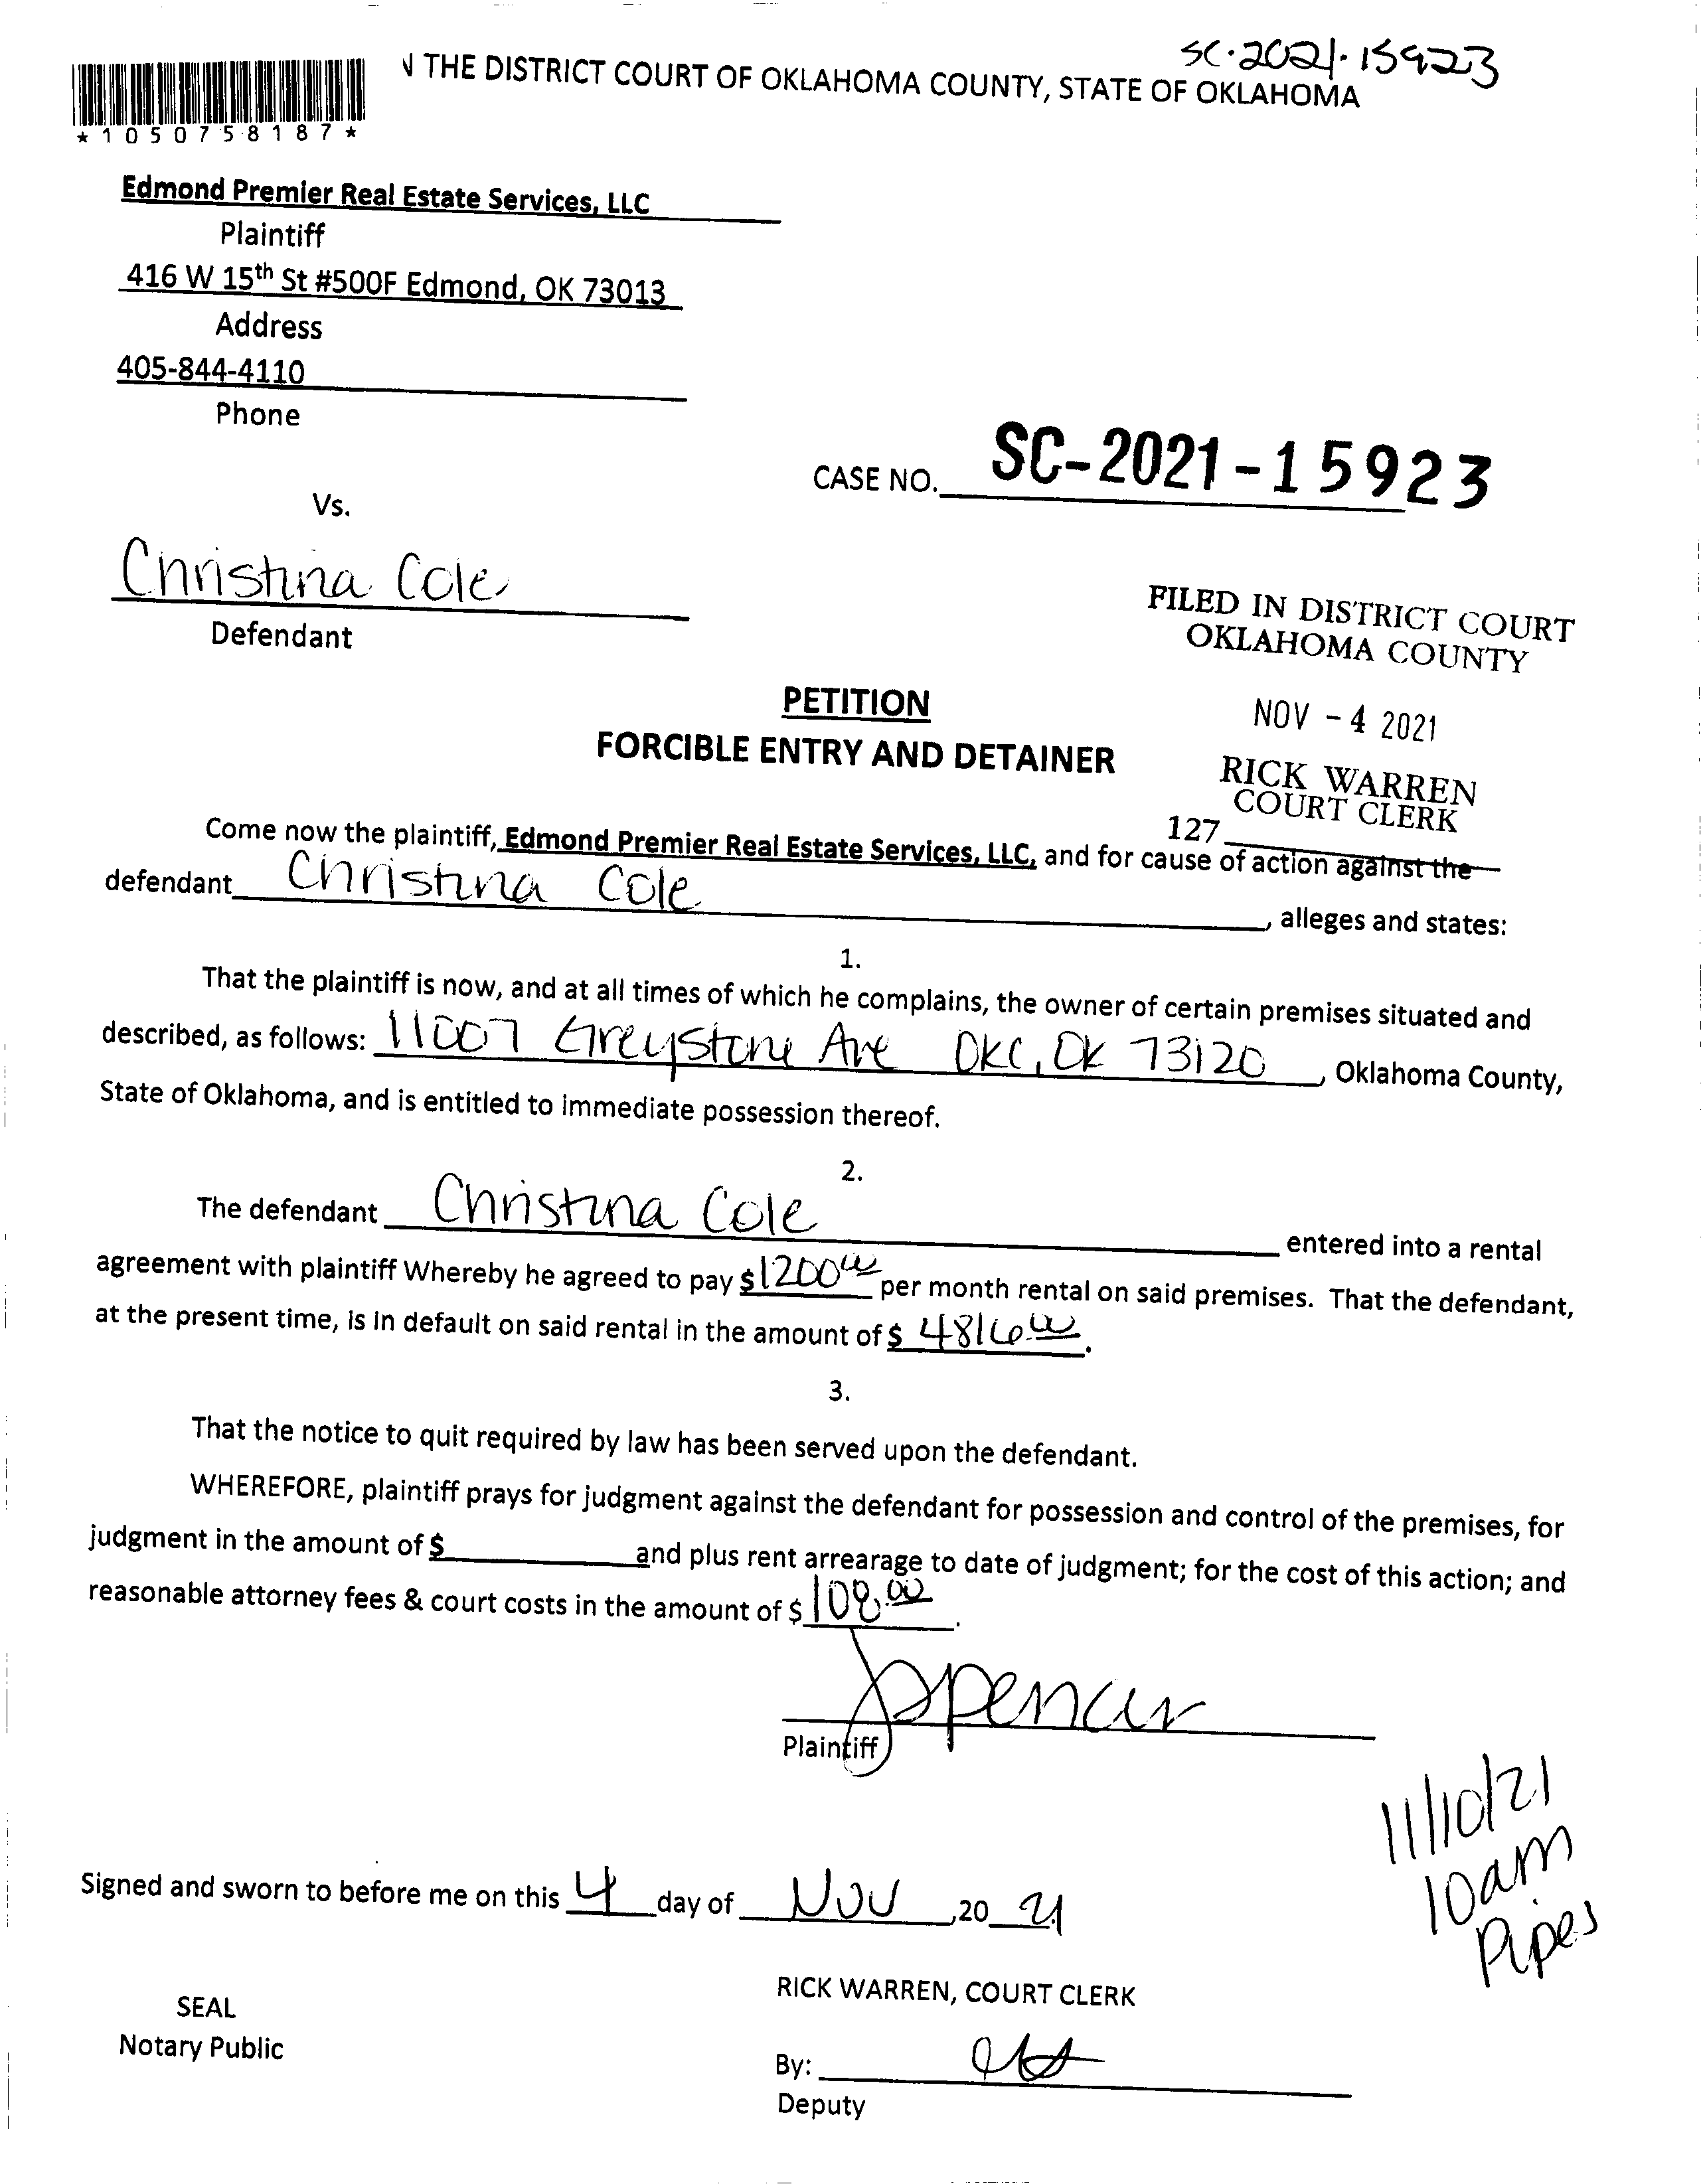 SC-2021-15923
N THE DISTRICT COURT OF OKLAHOMA COUNTY, STATE OF OKLAHOMA
* 1 0 5 0 7 5 8 1 8 7 *
Edmond Premier Real Estate Services, LLC
Plaintiff
416 W 15th St #500F Edmond, OK 73013
Address
405-844-4110
Phone
CASE NO. SC-2021-15923
Vs.
Christina Cole
Defendant
FILED IN DISTRICT COURT
OKLAHOMA COUNTY
NOV - 4 2021
RICK WARREN
COURT CLERK
127
PETITION
FORCIBLE ENTRY AND DETAINER
Come now the plaintiff, Edmond Premier Real Estate Services, LLC, and for cause of action against the
defendant Christina Cole, alleges and states:
1.
That the plaintiff is now, and at all times of which he complains, the owner of certain premises situated and
described, as follows: 11007 Greystone Ave OKC, OK 73120, Oklahoma County,
State of Oklahoma, and is entitled to immediate possession thereof.
2.
The defendant Christina Cole entered into a rental
agreement with plaintiff Whereby he agreed to pay $1200.00 per month rental on said premises. That the defendant,
at the present time, is in default on said rental in the amount of $ 4816.00.
3.
That the notice to quit required by law has been served upon the defendant.
WHEREFORE, plaintiff prays for judgment against the defendant for possession and control of the premises, for
judgment in the amount of $ and plus rent arrearage to date of judgment; for the cost of this action; and
reasonable attorney fees & court costs in the amount of $ 108.00.
JSpencer
Plaintiff
11/10/21
10am
Pipes
Signed and sworn to before me on this 4 day of Nov, 20 21
RICK WARREN, COURT CLERK
SEAL
Notary Public
By:
Deputy